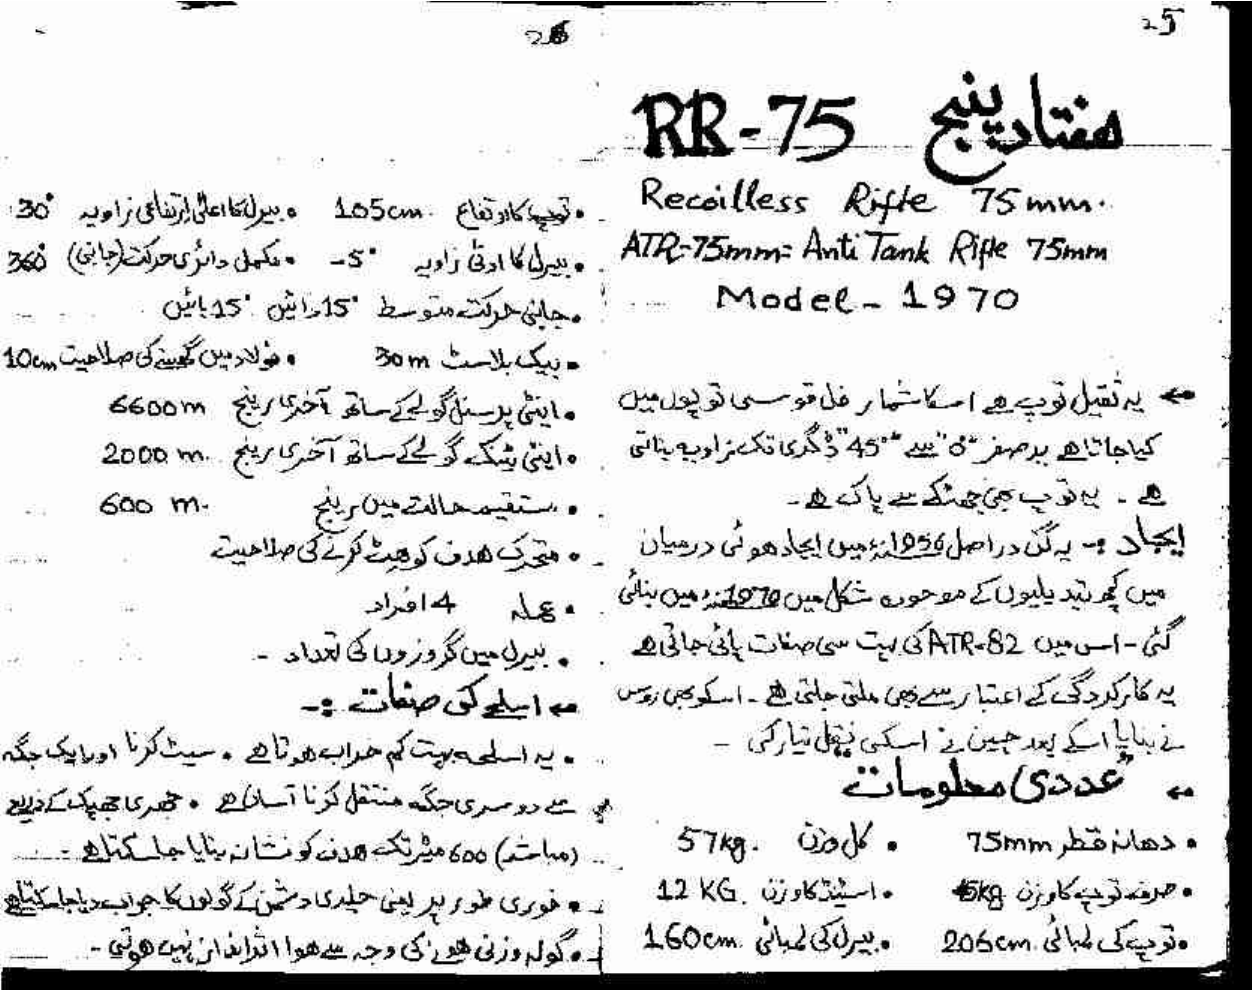 25
ہفتاد پنج RR-75
Recoilless Rifle 75mm.
ATR-75mm= Anti Tank Rifle 75mm
Model - 1970
یہ ثقیل توپ ہے اسکا شمار فل قوسی توپوں میں
کیا جاتا ہے یہ صفر "0° سے "45° ڈگری تک زاویہ بناتی
ہے ۔ یہ توپ بھی جھٹکے سے پاک ہے ۔
ایجاد :- یہ گن دراصل 1956ء میں ایجاد ہوئی درمیان
میں کچھ تبدیلیوں کے موجودہ شکل میں 1970ء میں بنائی
گئی ۔ اس میں ATR-82 کی بہت سی صفات پائی جاتی ہے
یہ کارکردگی کے اعتبار سے بھی ملتی جلتی ہے ۔ اسکو بھی روس
نے بنایا اسکے بعد چین نے اسکی نقل تیار کی ۔
عددی معلومات
• دھانہ قطر 75mm • کل وزن 57kg.
• صرف توپ کا وزن 45kg • اسٹینڈ کا وزن 12 KG.
• توپ کی لمبائی 206cm. • بیرل کی لمبائی 160cm.
26
• توپ کا ارتفاع 105cm. • بیرل کا اعلٰی ارتفاعی زاویہ 30°
• بیرل کا ادنٰی زاویہ -5° • مکمل دائری حرکت (جانبی) 360°
• جانبی حرکت متوسط 15° دائیں 15° بائیں
• بیک بلاسٹ 30m • فولاد میں گھسنے کی صلاحیت 10cm
• اینٹی پرسنل گولے کے ساتھ آخری رینج 6600m
• اینٹی ٹینک گولے کے ساتھ آخری رینج 2000 m.
• مستقیم حالت میں رینج 600 m.
• متحرک ھدف کو ھٹ کرنے کی صلاحیت
• عملہ 4 افراد
• بیرل میں گروزوں کی تعداد ۔
اسلحے کی صفات :-
• یہ اسلحہ بہت کم خراب ہوتا ہے • سیٹ کرنا اور ایک جگہ
سے دوسری جگہ منتقل کرنا آسان ہے • جھری جھپک کے ذریعے
(مباشر) 600 میٹر تک ھدف کو نشانہ بنایا جا سکتا ہے ۔
• فوری طور پر یعنی جلدی دشمن کے گولوں کا جواب دیا جا سکتا ہے
• گولہ وزنی ہونے کی وجہ سے ہوا اثر انداز نہیں ہوتی ۔